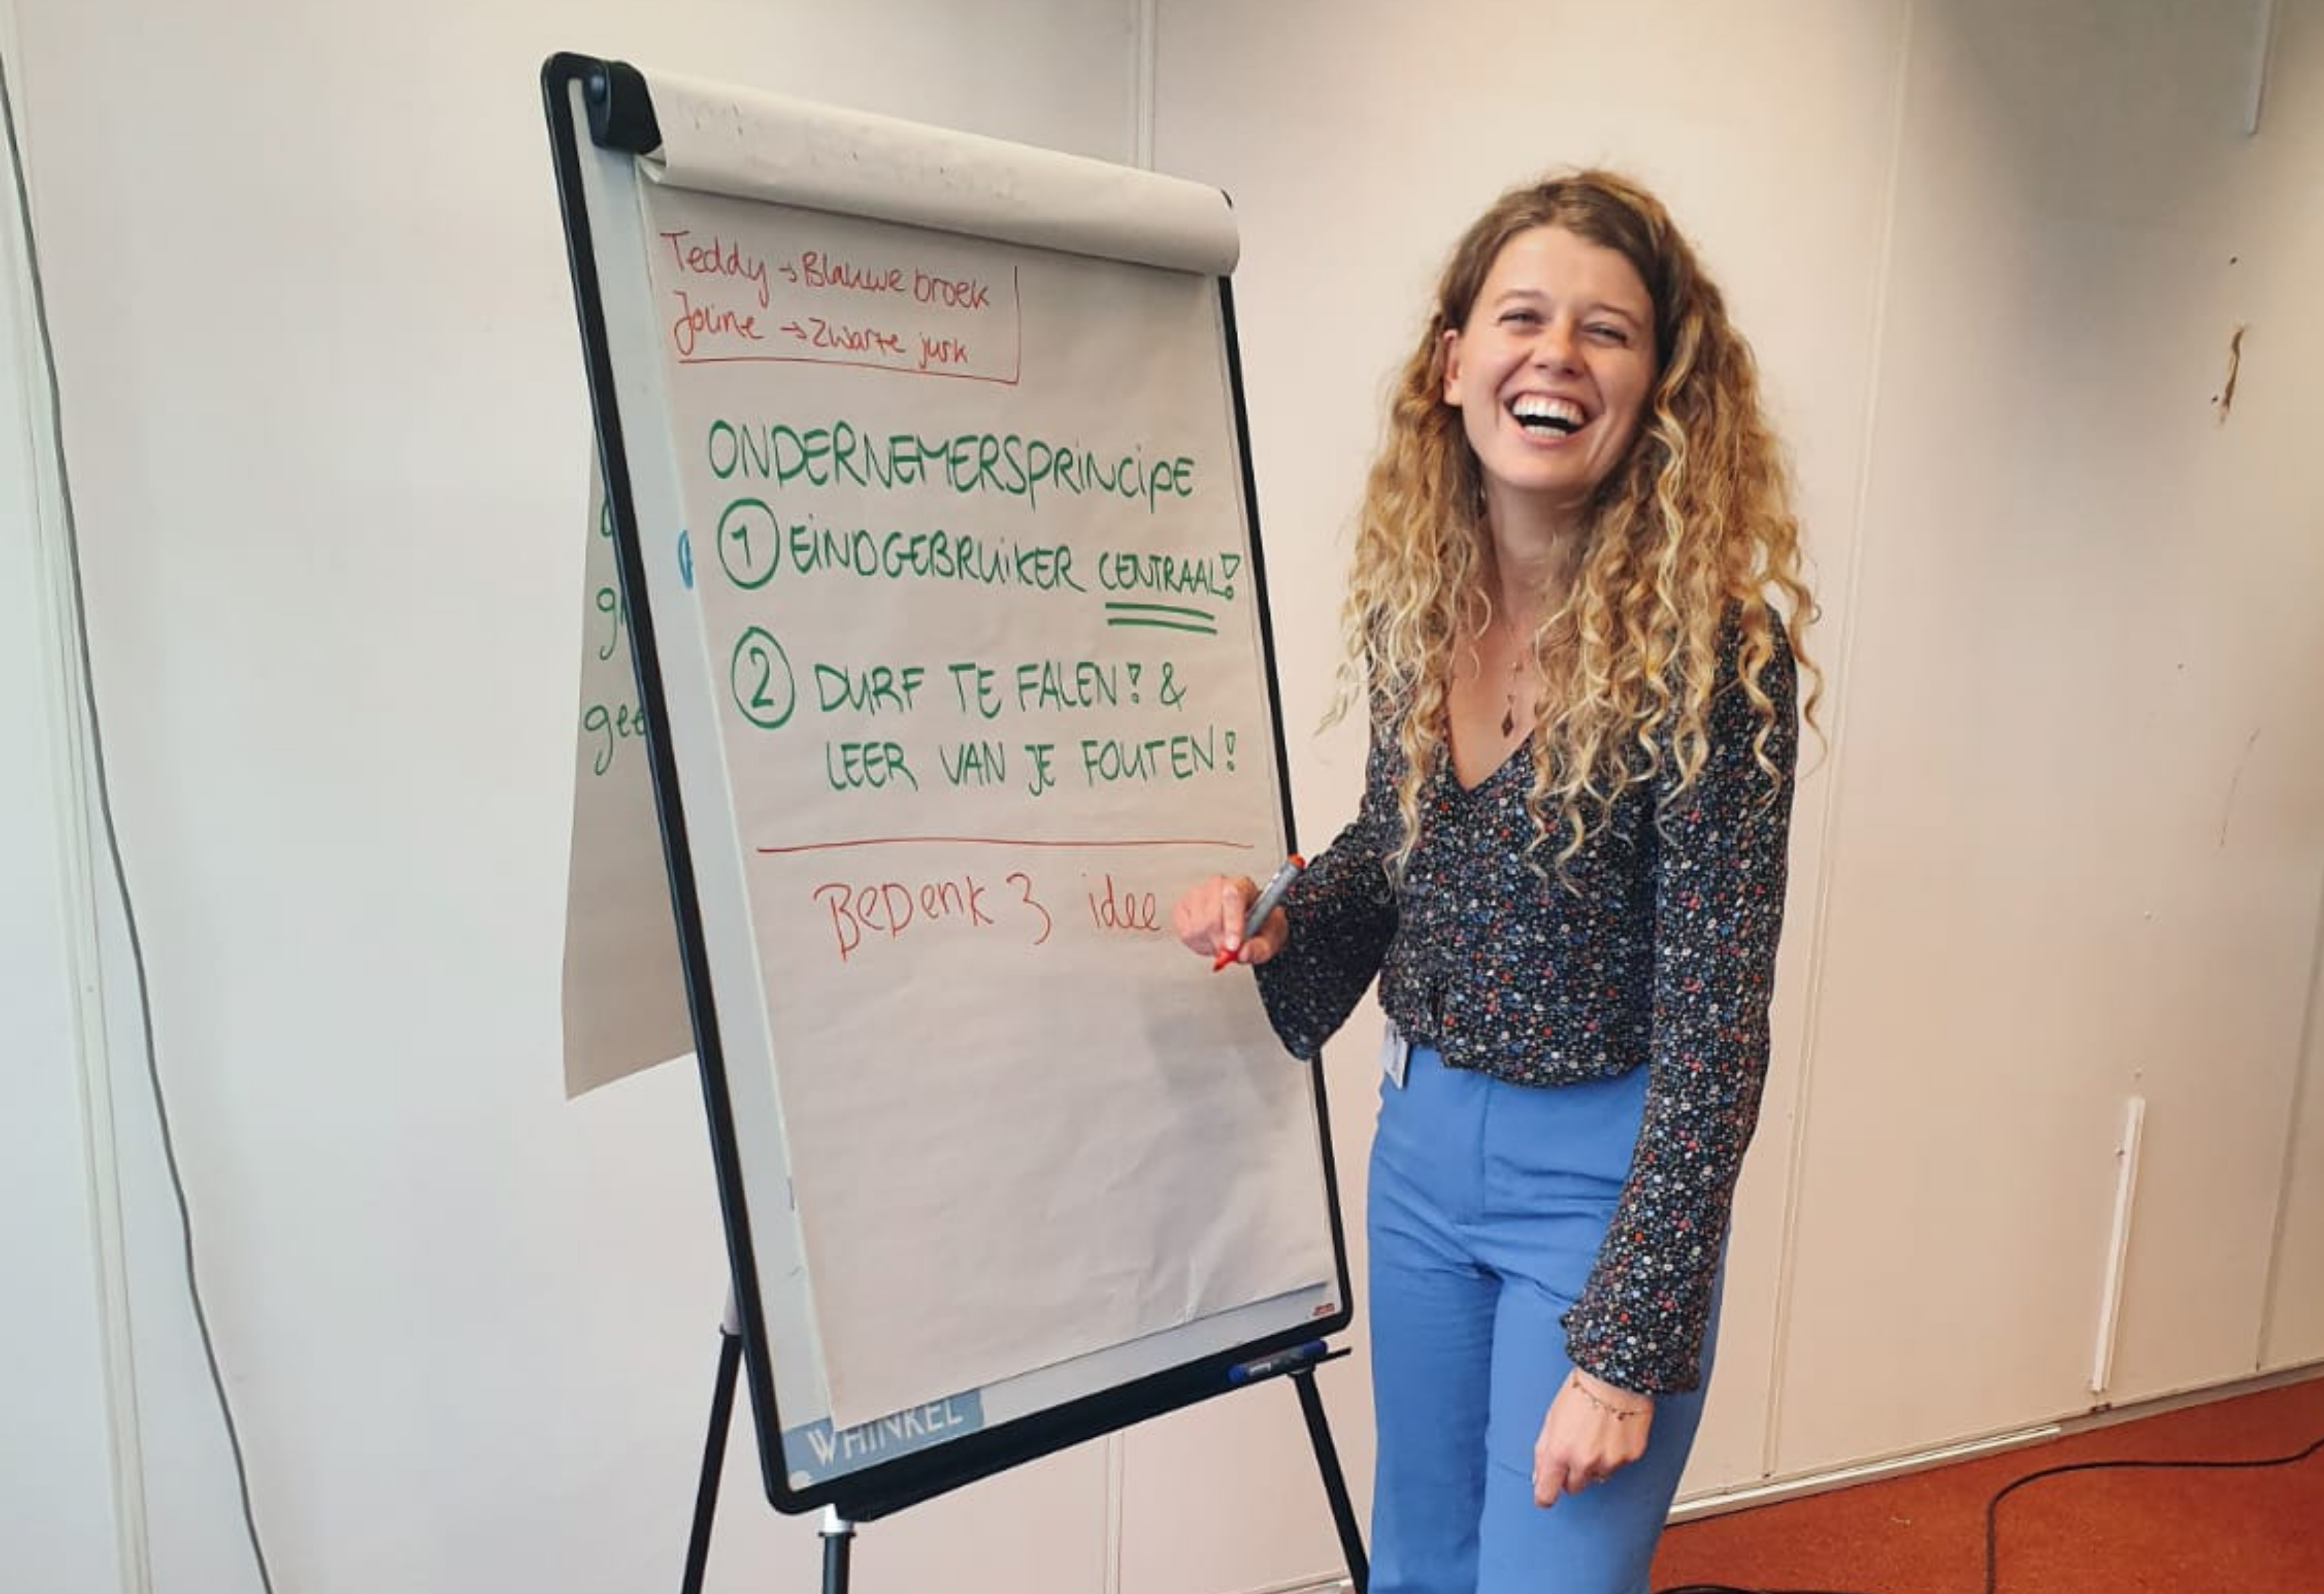 Teddy → Blauwe broek
Joline → Zwarte jurk
ONDERNEMERSPRINCIPE
1 EINDGEBRUIKER CENTRAAL!
2 DURF TE FALEN! &
LEER VAN JE FOUTEN!
BEDENK 3 idee
WHINKEL